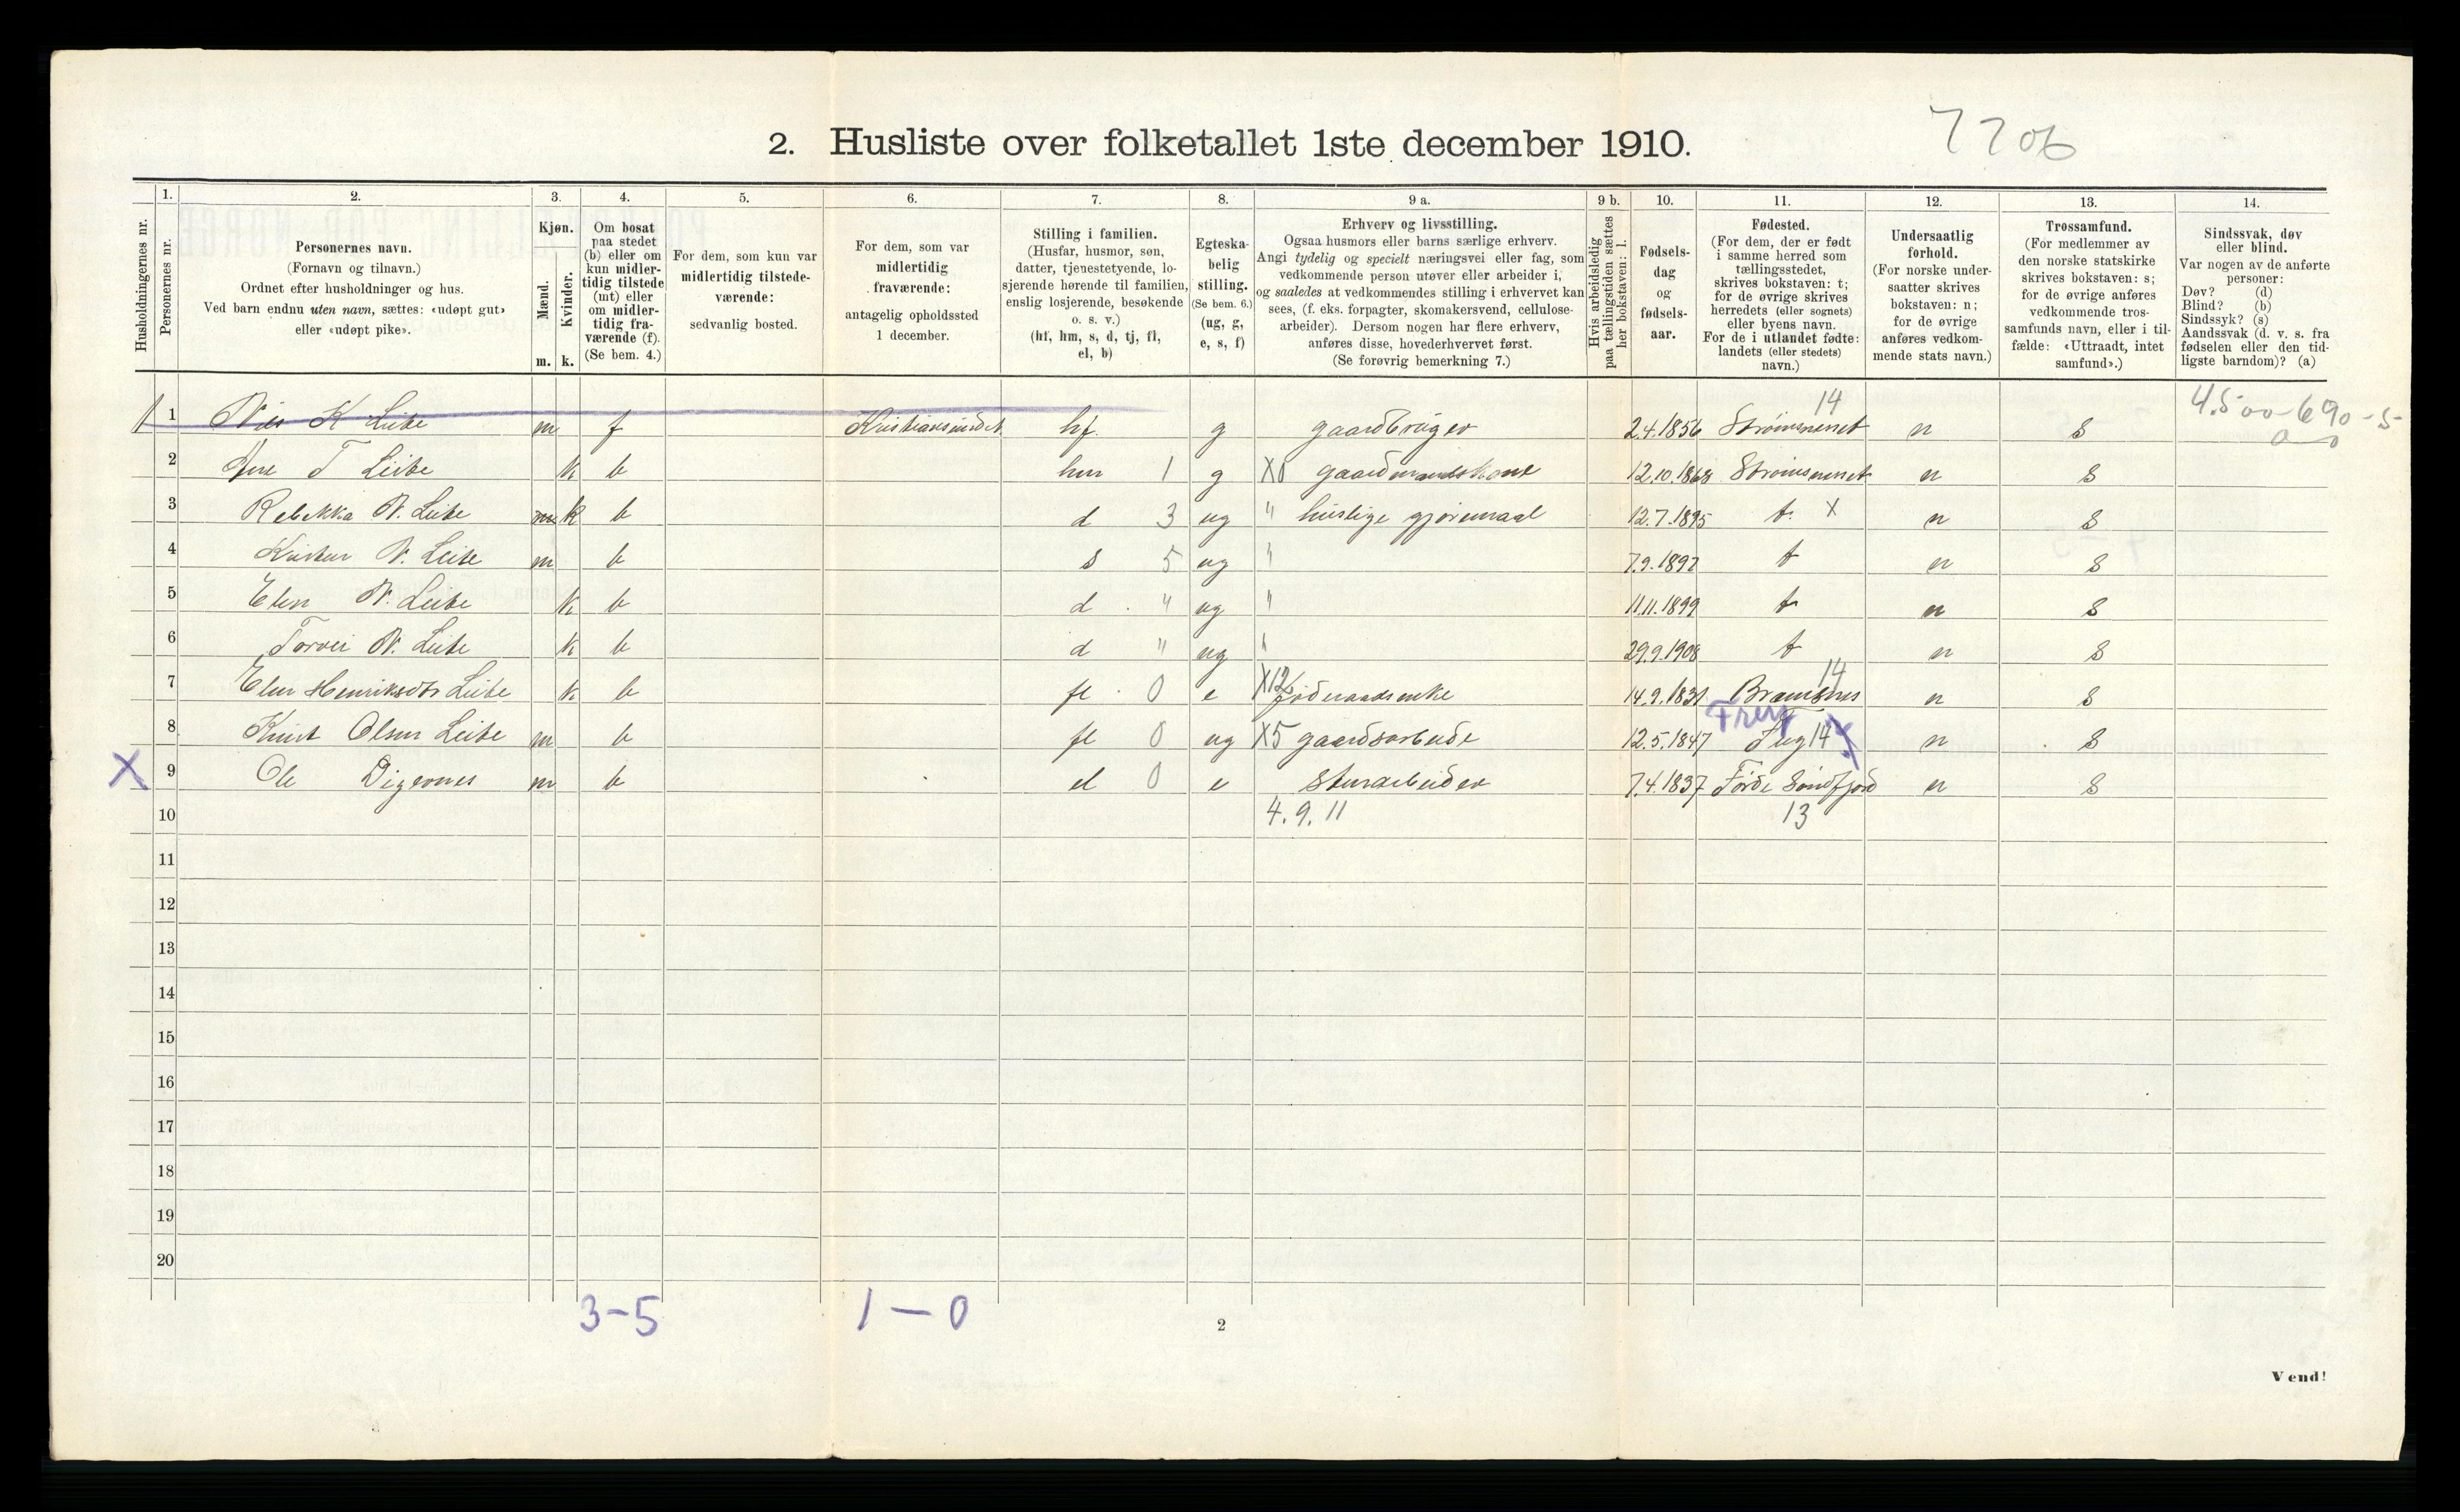 2. Husliste over folketallet 1ste december 1910.
7706
Husholdningernes nr.
1.
Personernes nr.
2.
Personernes navn.
(Fornavn og tilnavn.)
Ordnet efter husholdninger og hus.
Ved barn endnu uten navn, sættes: «udøpt gut»
eller «udøpt pike».
3.
Kjøn.
Mænd.
Kvinder.
m. k.
4.
Om bosat
paa stedet
(b) eller om
kun midler-
tidig tilstede
(mt) eller
om midler-
tidig fra-
værende (f).
(Se bem. 4.)
5.
For dem, som kun var
midlertidig tilstede-
værende:
sedvanlig bosted.
6.
For dem, som var
midlertidig
fraværende:
antagelig opholdssted
1 december.
7.
Stilling i familien.
(Husfar, husmor, søn,
datter, tjenestetyende, lo-
sjerende hørende til familien,
enslig losjerende, besøkende
o. s. v.)
(hf, hm, s, d, tj, fl,
el, b)
8.
Egteska-
belig
stilling.
(Se bem. 6.)
(ug, g,
e, s, f)
9 a.
Erhverv og livsstilling.
Ogsaa husmors eller barns særlige erhverv.
Angi tydelig og specielt næringsvei eller fag, som
vedkommende person utøver eller arbeider i,
og saaledes at vedkommendes stilling i erhvervet kan
sees, (f. eks. forpagter, skomakersvend, cellulose-
arbeider). Dersom nogen har flere erhverv,
anføres disse, hovederhvervet først.
(Se forøvrig bemerkning 7.)
9 b.
Hvis arbeidsledig
paa tællingstiden sættes
her bokstaven: l.
10.
Fødsels-
dag
og
fødsels-
aar.
11.
Fødested.
(For dem, der er født
i samme herred som
tællingsstedet,
skrives bokstaven: t;
for de øvrige skrives
herredets (eller sognets)
eller byens navn.
For de i utlandet fødte:
landets (eller stedets)
navn.)
12.
Undersaatlig
forhold.
(For norske under-
saatter skrives
bokstaven: n;
for de øvrige
anføres vedkom-
mende stats navn.)
13.
Trossamfund.
(For medlemmer av
den norske statskirke
skrives bokstaven: s;
for de øvrige anføres
vedkommende tros-
samfunds navn, eller i til-
fælde: «Uttraadt, intet
samfund».)
14.
Sindssvak, døv
eller blind.
Var nogen av de anførte
personer:
Døv? (d)
Blind? (b)
Sindssyk? (s)
Aandssvak (d. v. s. fra
fødselen eller den tid-
ligste barndom)? (a)
14 4.500-690-5-
0-0
1 Nils K Leite m f Kristiansund N hf. g gaardbruger 2.4.1856 Strømsneset n s
2 Ane T Leite k b hm 1 g X0 gaardmandskone 12.10.1868 Strømsneset n s
3 Rebekka N. Leite k b d 3 ug " huslige gjøremaal 12.7.1895 t. X n s
4 Kristen N. Leite m b s 5 ug " 7.9.1897 t n s
5 Elen N. Leite k b d " ug " 11.11.1899 t n s
6 Torvei N. Leite k b d " ug " 29.9.1908 t n s
14
7 Elen Henriksdtr Leite k b fl 0 e X12 føderaadsenke 14.9.1831 Bremsnes n s
Frey
8 Knut Olsen Leite m b fl 0 ug X5 gaardsarbeide 12.5.1847 14 n s
X 9 Ole Digernes m b el 0 e Stenarbeider 7.4.1837 Førde Søndfjord n s
10 4.9.11 13
11
12
13
14
15
16
17
18
19
20
3-5 1-0
2
Vend!